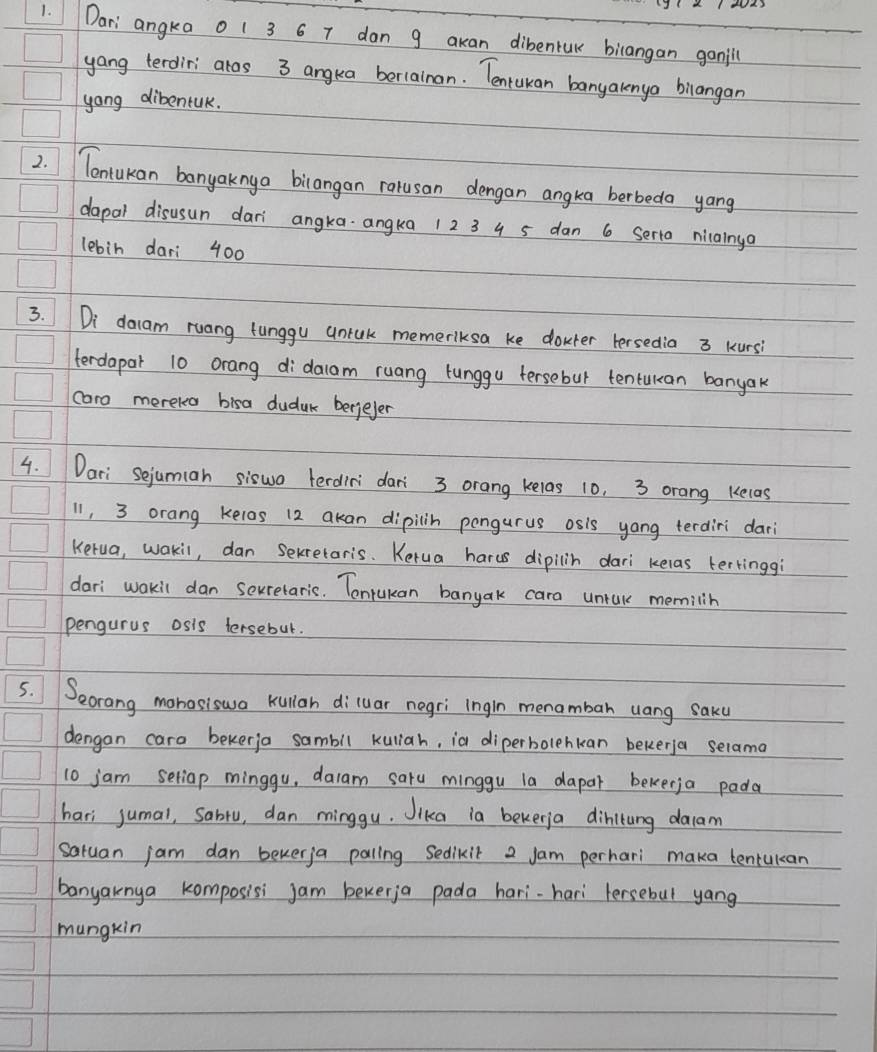 19 / 2 / 2025
1. Dari angka 0 1 3 6 7 dan 9 akan dibentuk bilangan ganjil
yang terdiri atas 3 angka berlainan. Tentukan banyaknya bilangan
yang dibentuk.
2. Tentukan banyaknya bilangan ratusan dengan angka berbeda yang
dapat disusun dari angka-angka 1 2 3 4 5 dan 6 serta nilainya
lebih dari 400
3. Di dalam ruang tunggu untuk memeriksa ke dokter tersedia 3 kursi
terdapat 10 orang di dalam ruang tunggu tersebut tentukan banyak
cara mereka bisa duduk berjejer
4. Dari sejumlah siswa terdiri dari 3 orang kelas 10, 3 orang kelas
11, 3 orang kelas 12 akan dipilih pengurus osis yang terdiri dari
ketua, wakil, dan sekretaris. Ketua harus dipilih dari kelas tertinggi
dari wakil dan sekretaris. Tentukan banyak cara untuk memilih
pengurus osis tersebut.
5. Seorang mahasiswa kuliah di luar negri ingin menambah uang saku
dengan cara bekerja sambil kuliah, ia diperbolehkan bekerja selama
10 jam setiap minggu, dalam satu minggu ia dapat bekerja pada
hari jumat, sabtu, dan minggu. Jika ia bekerja dihitung dalam
satuan jam dan bekerja paling sedikit 2 jam perhari maka tentukan
banyaknya komposisi jam bekerja pada hari-hari tersebut yang
mungkin